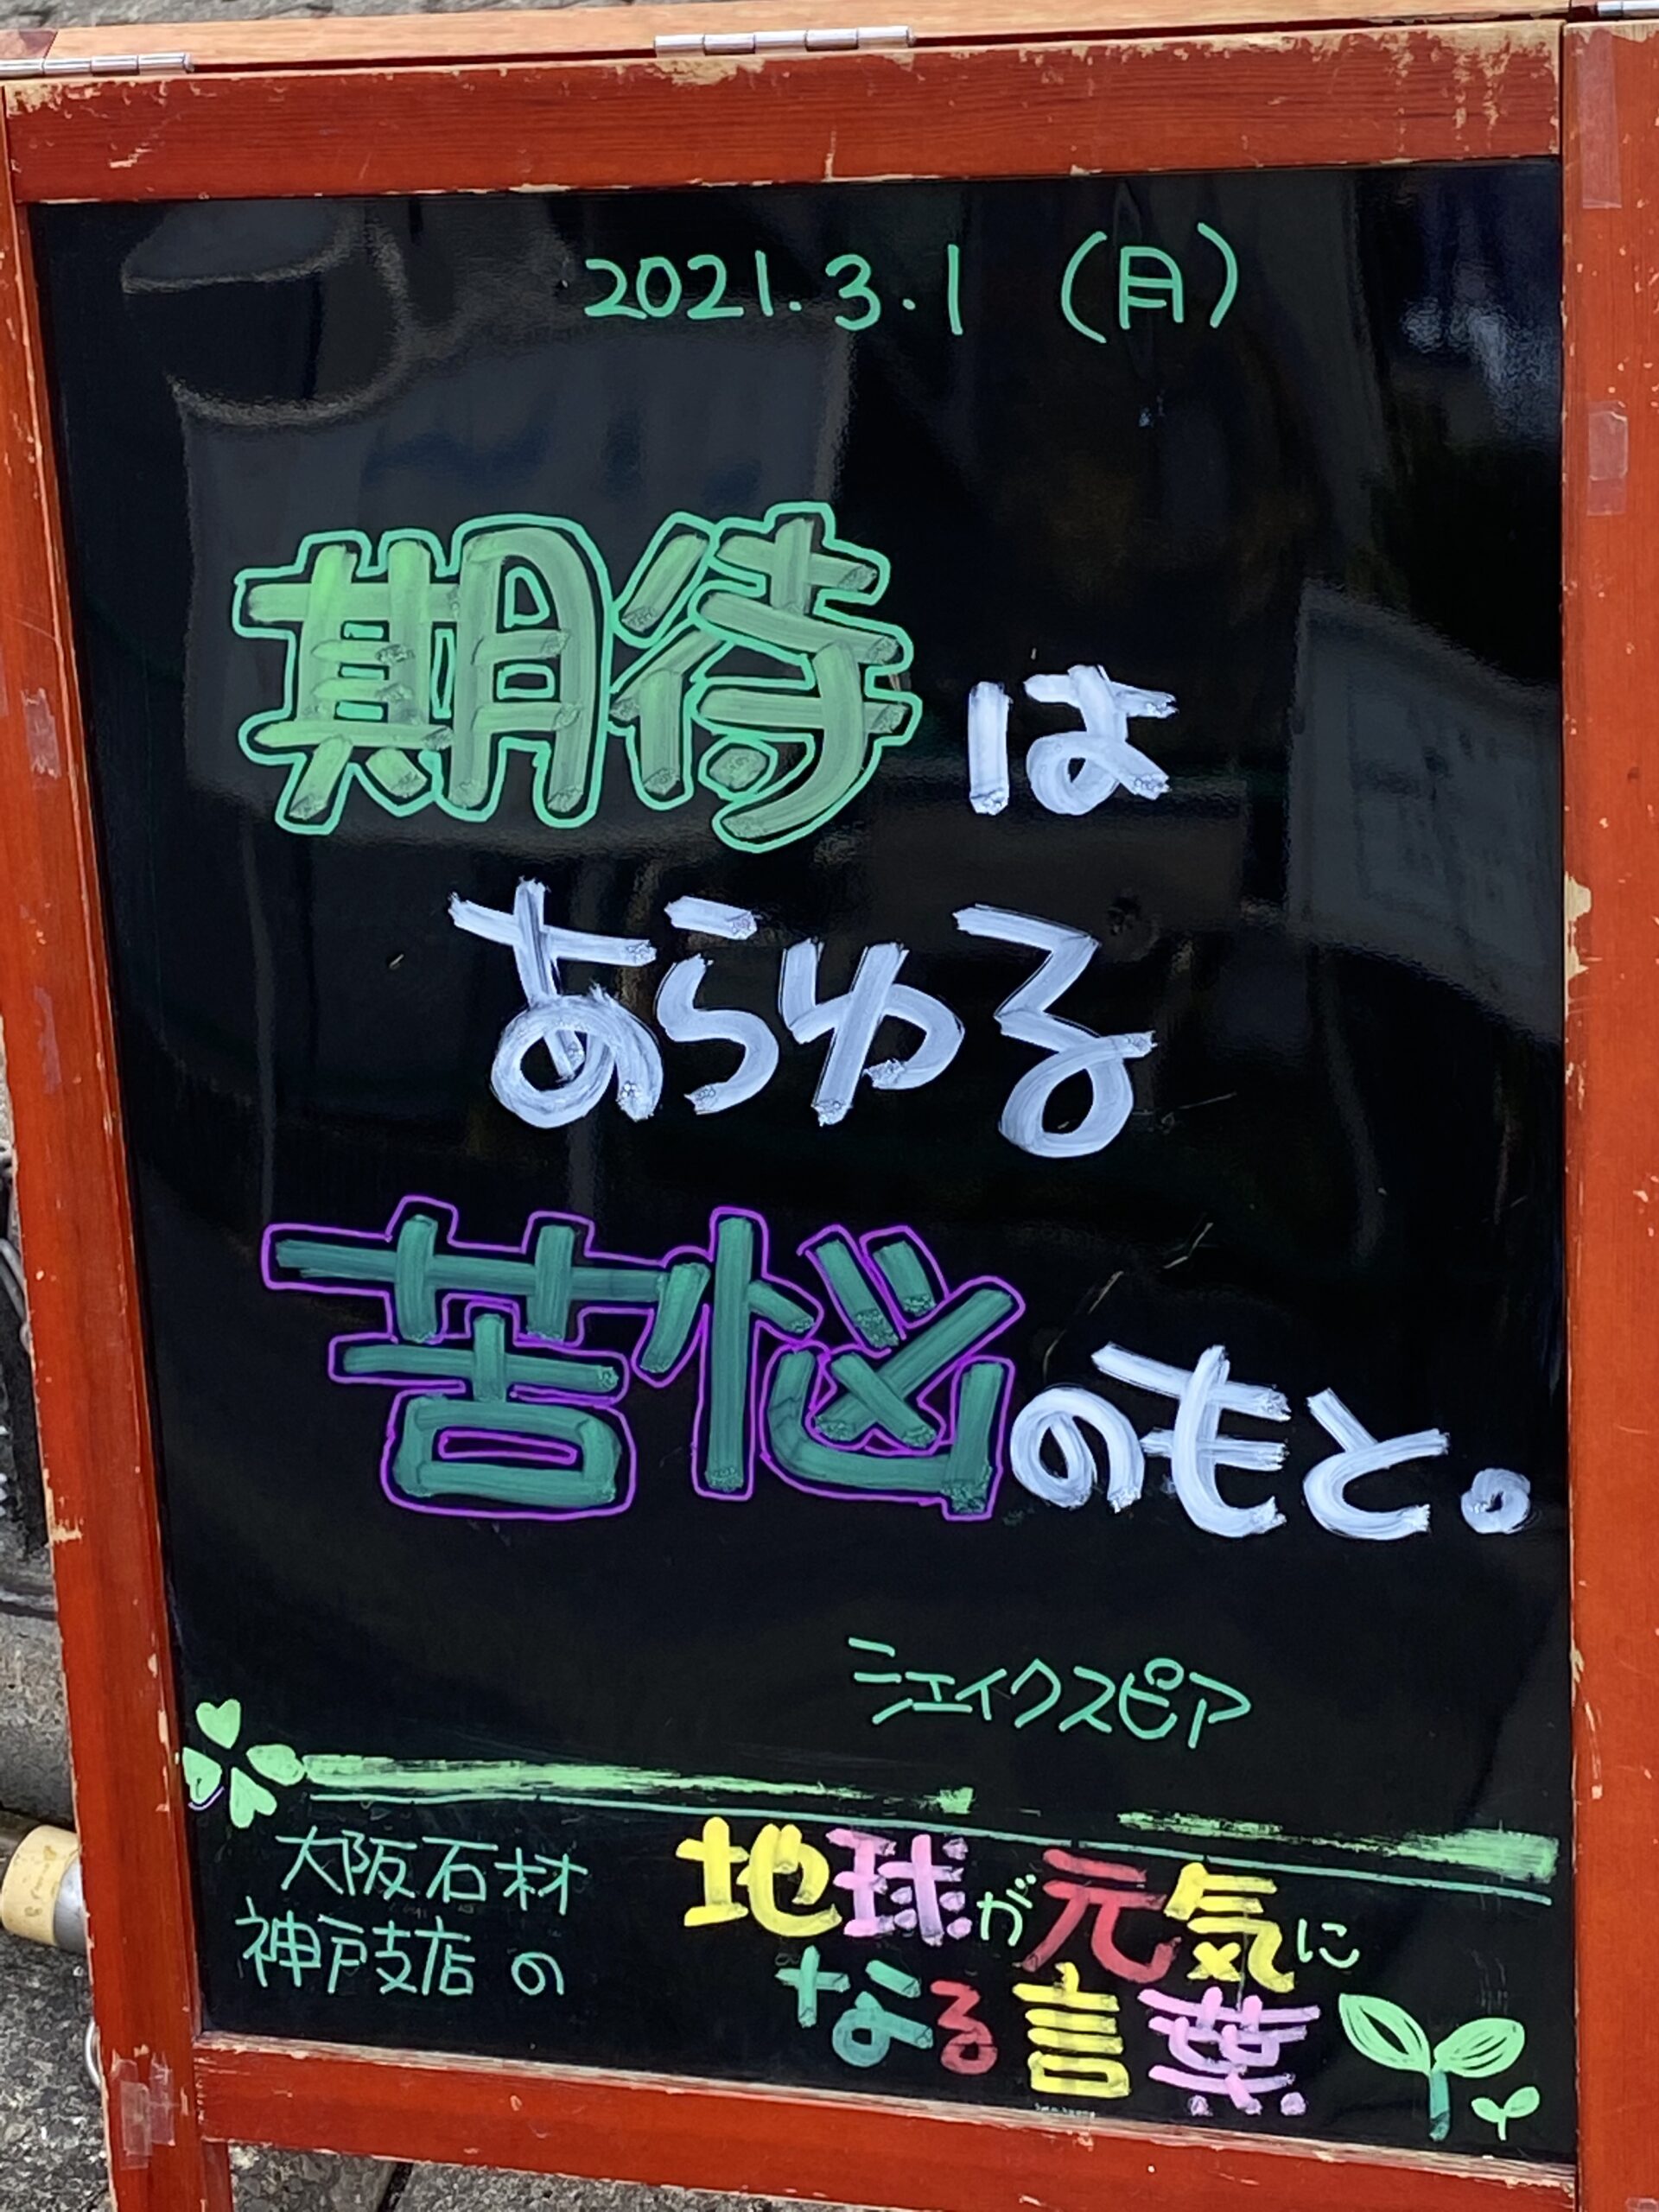 2021.3.1(月)
期待は
あらゆる
苦悩のもと。
シェイクスピア
大阪石材
神戸支店の
地球が元気に
なる言葉